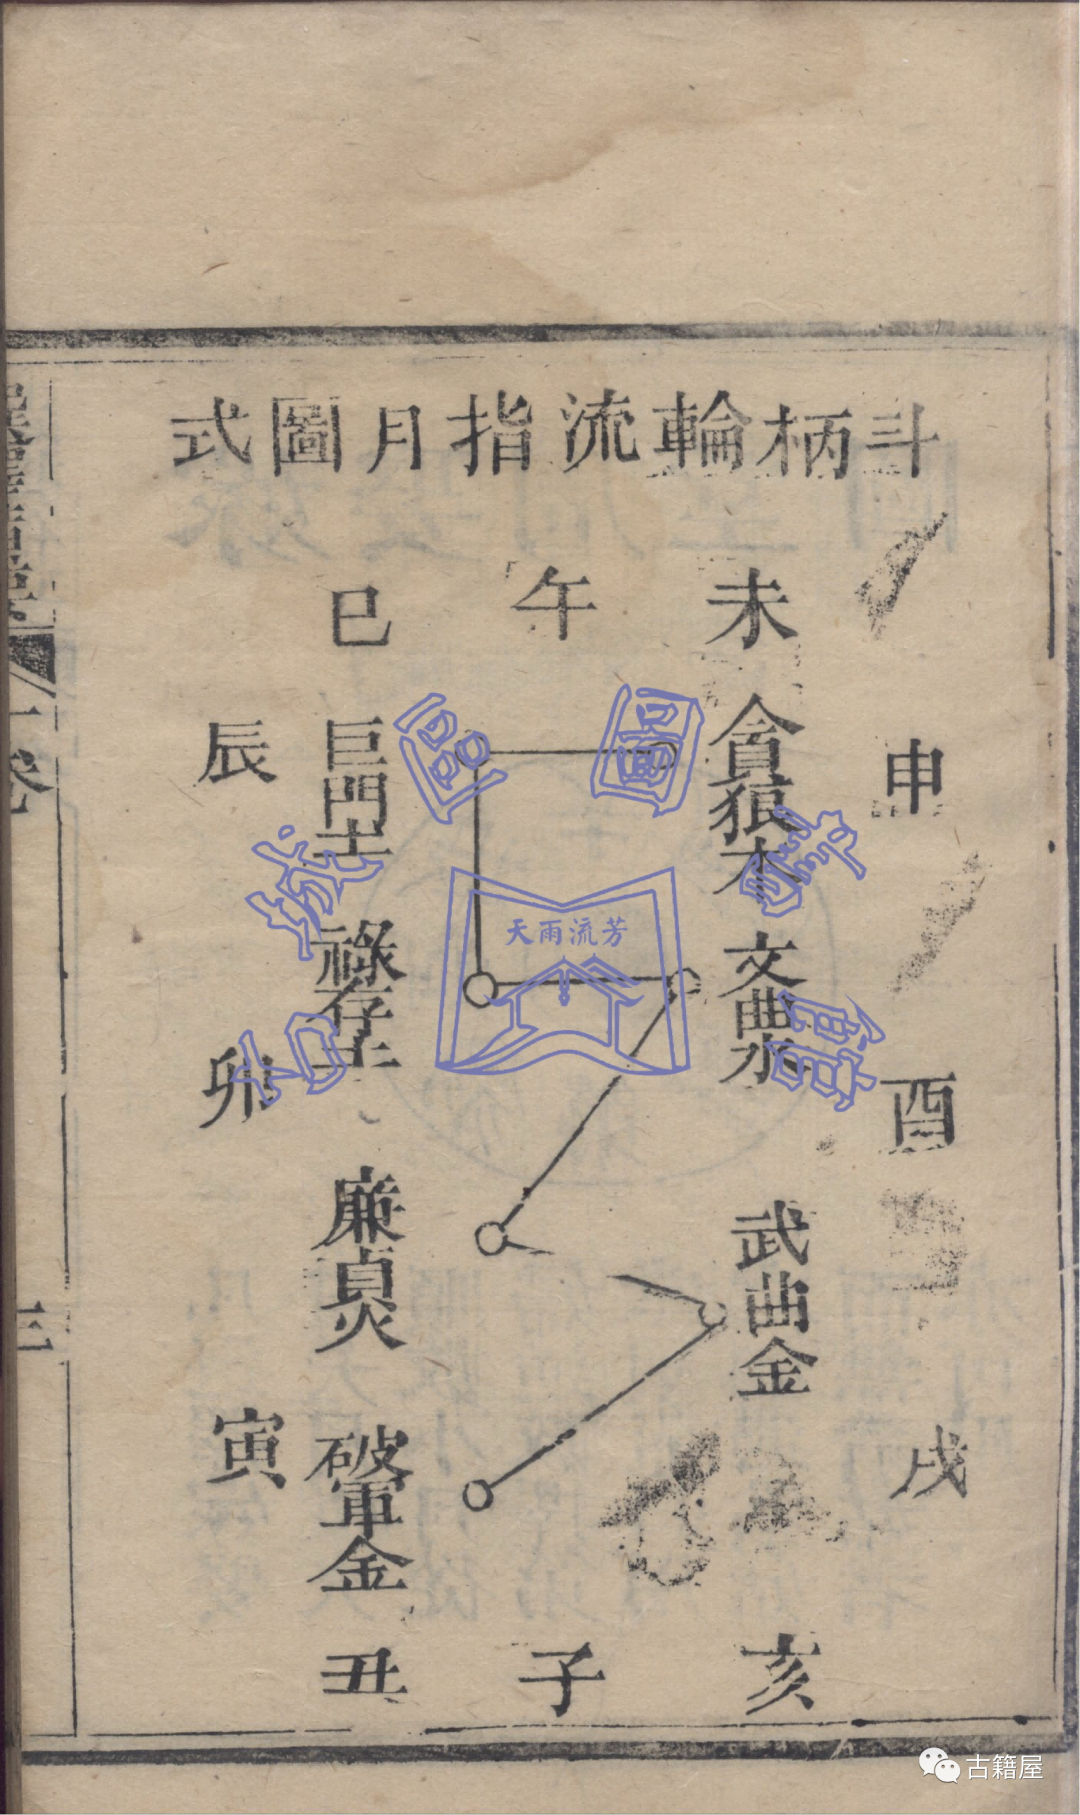 斗柄輪流指月圖式
未
午
巳
申
貪狼木
巨門土
辰
文曲水
祿存土
酉
卯
武曲金
廉貞火
戌
破軍金
寅
亥
子
丑
一卷
三
天雨流芳
圖
古籍屋